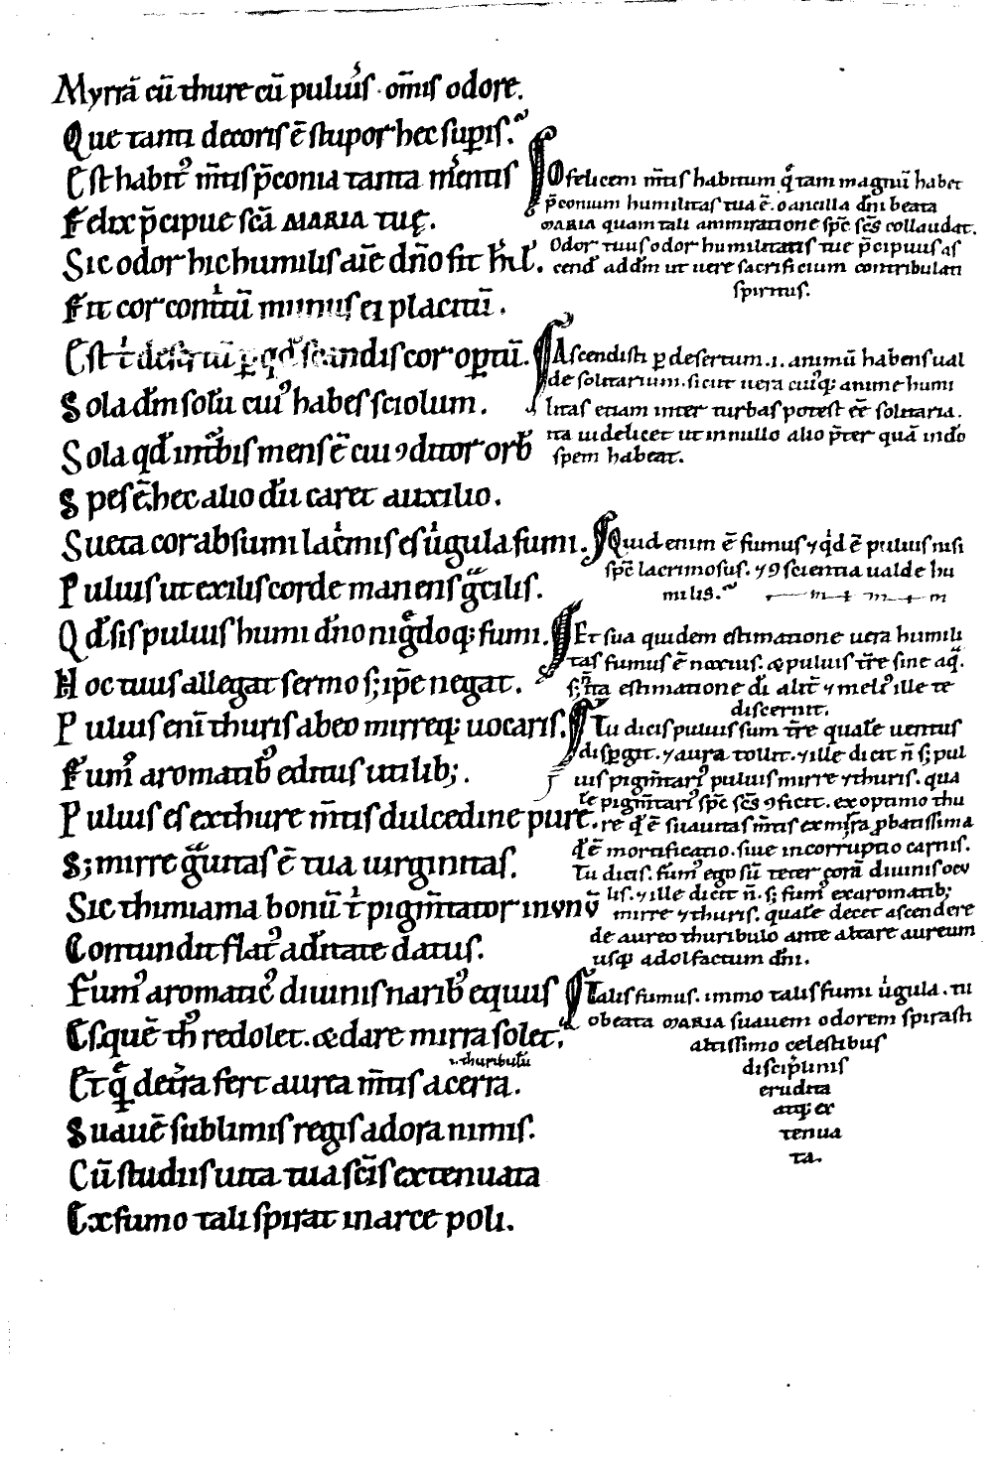 Myrrā cū thure cū puluis · om̄is odore.
Que tanti decoris ē stupor hec suꝑis.
Est habit᷒ m̄tis p̄conia tanta m̓entis
Felix p̄cipue scā MARIA tuę.
Sic odor hic humilis aīe dn̄o fit
Fit cor cont̓tū munus ei placitū.
Est scandis cor oꝑtū.
Sola dm̄ solū cui᷒ habes sciolum.
Sola qd̄ mens ē cui ꝯditor orb̄
Spes ē hec alio dū caret auxilio.
Sueta cor absumi lac̓mis es ū̓gula fumi.
Puluis ut exilis corde manens gͣcilis.
Qd̄ sis puluis humi dn̄o nigͣdoqꝫ fumi.
Hoc tuus allegat sermo sꝫ ip̄e negat.
Puluis eni᷒ thuris abeo mirreqꝫ uocaris.
Fum᷒ aromatib᷒ editus utilibꝫ.
Puluis es ex thure m̄tis dulcedine pure.
Sꝫ mirre gͣuitas ē tua uirginitas.
Sic thimiama bonū t̓ pigm̄tator in unū
Contundit flat᷒ ad̓itate datus.
Fum᷒ aromatic᷒ diuinis narib᷒ equus
Esquē th᷒ redolet. & dare mirra solet.
.i. thuribulū
Et qͣ dext̓a fert aurea m̄tis acerra.
Suauē sublimis regis adora nimis.
Cū studiis uita tua scīs extenuata
Ex fumo tali spirat in arce poli.
O felicem m̄tis habitum qͥ tam magnū habet
p̄conium humilitas tua ē. o ancilla dn̄i beata
MARIA quam tali ammiratione spc̄ scs̄ collaudat.
Odor tuus odor humilitatis tue p̄cipuus as
cend̄ ad dm̄ ut uere sacrificium contribulati
spiritus.
Ascendisti ꝑ desertum .i. animū habens ual
de solitarium. sicut uera cui᷒qꝫ anime humi
litas etiam inter turbas potest eē solitaria.
ita uidelicet ut in nullo alio p̄ter quā in do
spem habeat.
Quid enim ē fumus ⁊ qͥd ē puluis nisi
spc̄ lacrimosus. ⁊ ꝯscientia ualde hu
milis.
Et sua quidem estimatione uera humili
tas fumus ē noxius. & puluis tr̄e sine aqͣ.
sꝫ estimatione di alit̄ ⁊ meli᷒ ille te
discernit.
Tu dicis puluis sum tr̄e quale uentus
disꝑgit. ⁊ aura tollit. ⁊ ille dicit n̄ sꝫ pul
uis pigm̄tari᷒ puluis mirre ⁊ thuris. qua
le pigm̄tari᷒ spc̄ scs̄ ꝯficit. ex optimo thu
re qd̄ ē suauitas m̄tis ex mirra ꝓbatissima
qd̄ ē mortificatio. siue incorruptio carnis.
Tu dicis. fum᷒ ego sū teter corā diuinis ocu
lis. ⁊ ille dicit n̄. sꝫ fum᷒ ex aromatibꝫ
mirre ⁊ thuris. quale decet ascendere
de aureo thuribulo ante altare aureum
usqꝫ ad olfactum dn̄i.
Talis fumus. immo talis fumi ū̓gula. tu
o beata MARIA suauem odorem spirasti
altissimo celestibus
disciplinis
erudita
atqꝫ ex
tenua
ta.